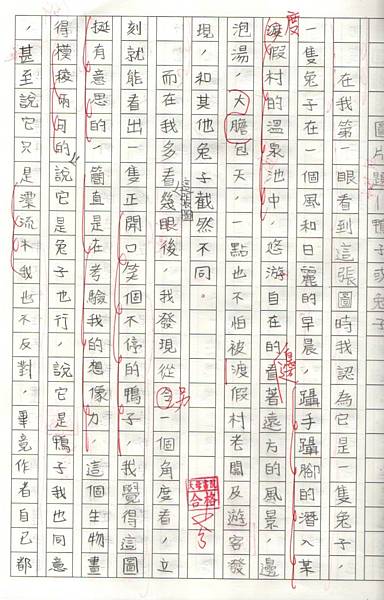 圖片題－鴨子或兔子
在我第一眼看到這張圖時我認為它是一隻兔子，
一隻兔子在一個風和日麗的早晨，躡手躡腳的潛入某
度
渡假村的溫泉池中，悠游自在的看著遠方的風景，邊
邊
泡湯，大膽包天，一點也不怕被渡假村老闆及游客發
現，和其他兔子截然不同。
合格
這張圖
而在我多看幾眼後，我發現從令一個角度看，立
另
刻就能看出一隻正開口笑個不停的鴨子，我覺得這圖
挺有意思的，簡直是在考驗我的想像力，這個生物畫
得模稜兩可的，說它是兔子也行，說它是鴨子我也同意
，甚至說它只是漂流木我也不反對，畢竟作者自己都